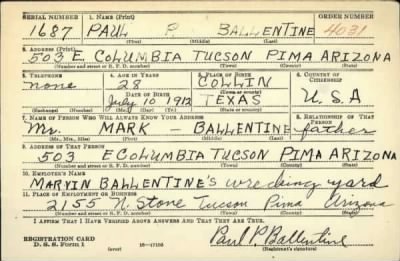 SERIAL NUMBER 1. NAME (Print) ORDER NUMBER
1687 PAUL P. BALLENTINE 4031
(First) (Middle) (Last)
2. ADDRESS (Print)
503 E. COLUMBIA TUCSON PIMA ARIZONA
(Number and street or R. F. D. number) (Town) (County) (State)
3. TELEPHONE 4. AGE IN YEARS 5. PLACE OF BIRTH 6. COUNTRY OF CITIZENSHIP
none 28 COLLIN
DATE OF BIRTH (Town or county)
July 10 1912 TEXAS U.S.A
(Exchange) (Number) (Mo.) (Day) (Yr.) (State or country)
7. NAME OF PERSON WHO WILL ALWAYS KNOW YOUR ADDRESS 8. RELATIONSHIP OF THAT PERSON
Mr. MARK - BALLENTINE father
(Mr., Mrs., Miss) (First) (Middle) (Last)
9. ADDRESS OF THAT PERSON
503 E COLUMBIA TUCSON PIMA ARIZONA
(Number and street or R. F. D. number) (Town) (County) (State)
10. EMPLOYER'S NAME
MARVIN BALLENTINE'S wrecking yard
11. PLACE OF EMPLOYMENT OR BUSINESS
2155 N. Stone Tucson Pima Arizona
(Number and street or R. F. D. number) (Town) (County) (State)
I AFFIRM THAT I HAVE VERIFIED ABOVE ANSWERS AND THAT THEY ARE TRUE.
REGISTRATION CARD
D. S. S. Form 1 (over) 16—17105 Paul P. Ballentine
(Registrant's signature)